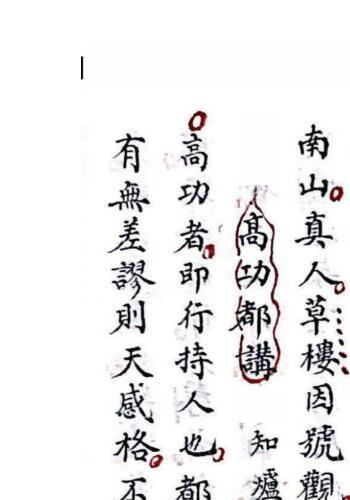 南山真人草樓因號觀
髙功都講 知爐
高功者即行持人也都
有無差謬則天感格不